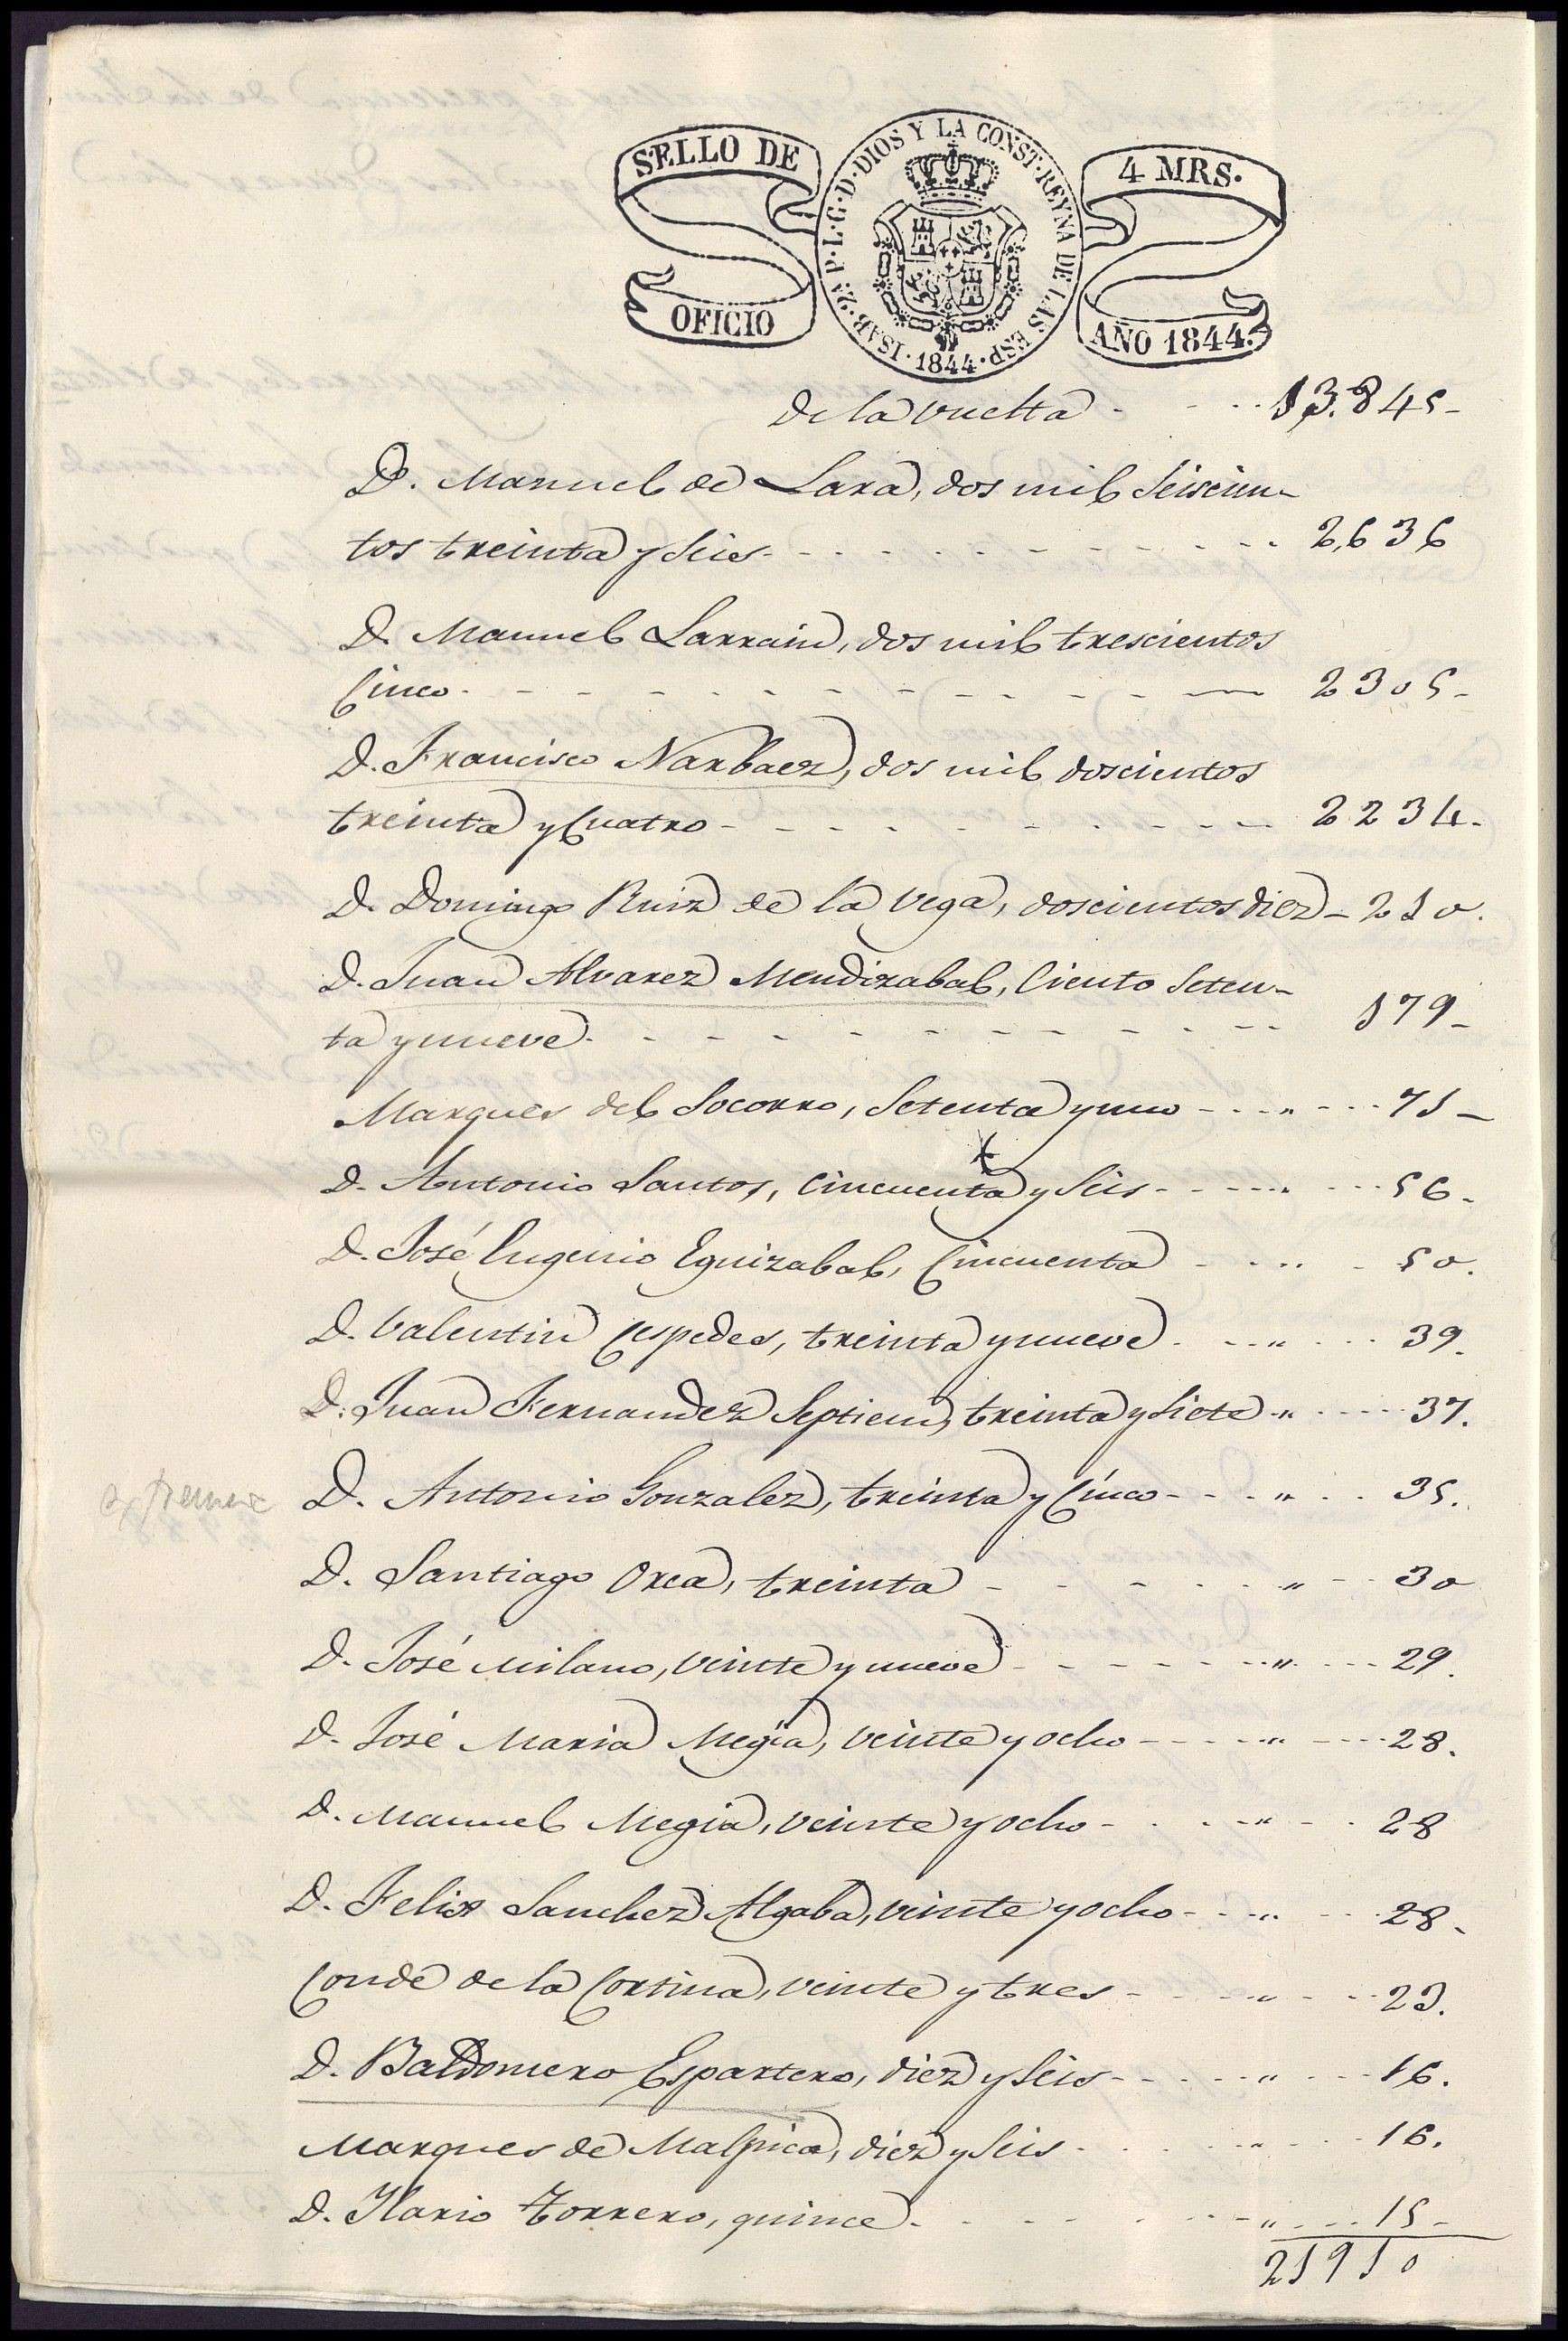 SELLO DE
OFICIO
ISAB. 2ª P. L. G. D. DIOS Y LA CONST. REYNA DE LAS ESP. 1844.
4 MRS.
AÑO 1844.
De la vuelta - - - - 13.845 -
D. Manuel de Lara, dos mil Seiscien-
tos treinta y Seis - - - - - - - - - - 2,636
D. Manuel Larrain, dos mil trescientos
Cinco - - - - - - - - - - - - - 2305 -
D. Francisco Narbaez, dos mil doscientos
treinta y Cuatro - - - - - - - - - - 2234 -
D. Domingo Ruiz de la Vega, doscientos diez - 210.
D. Juan Alvarez Mendizabal, Ciento Seten-
ta y nueve - - - - - - - - - - - - 179 -
Marques del Socorro, Setenta y uno - - - " - - - 71 -
D. Antonio Santos, Cincuenta y Seis - - - - " - - - 56 -
D. José Eugenio Eguizabal, Cincuenta - - - " - 50.
D. Valentin Cespedes, treinta y nueve - - - " - - - 39.
D. Juan Fernandez Septien, treinta y Siete - " - - - - 37.
D. Antonio Gonzalez, treinta y Cinco - - - " - - 35.
D. Santiago Orca, treinta - - - - - - " - - 30
D. José Milano, veinte y nueve - - - - - - " - - - 29.
D. José Maria Megia, veinte y ocho - - - - " - - - 28.
D. Manuel Megia, veinte y ocho - - - - " - - - 28
D. Felix Sanchez Algaba, veinte y ocho - - - " - - - 28 -
Conde de la Cortina, veinte y tres - - - - " - - - 23.
D. Baldomero Espartero, diez y Seis - - - - - " - - - 16.
Marques de Malpica, diez y Seis - - - - " - - - 16.
D. Ylario Torrero, quince - - - - - - - " - - - 15 -
21910